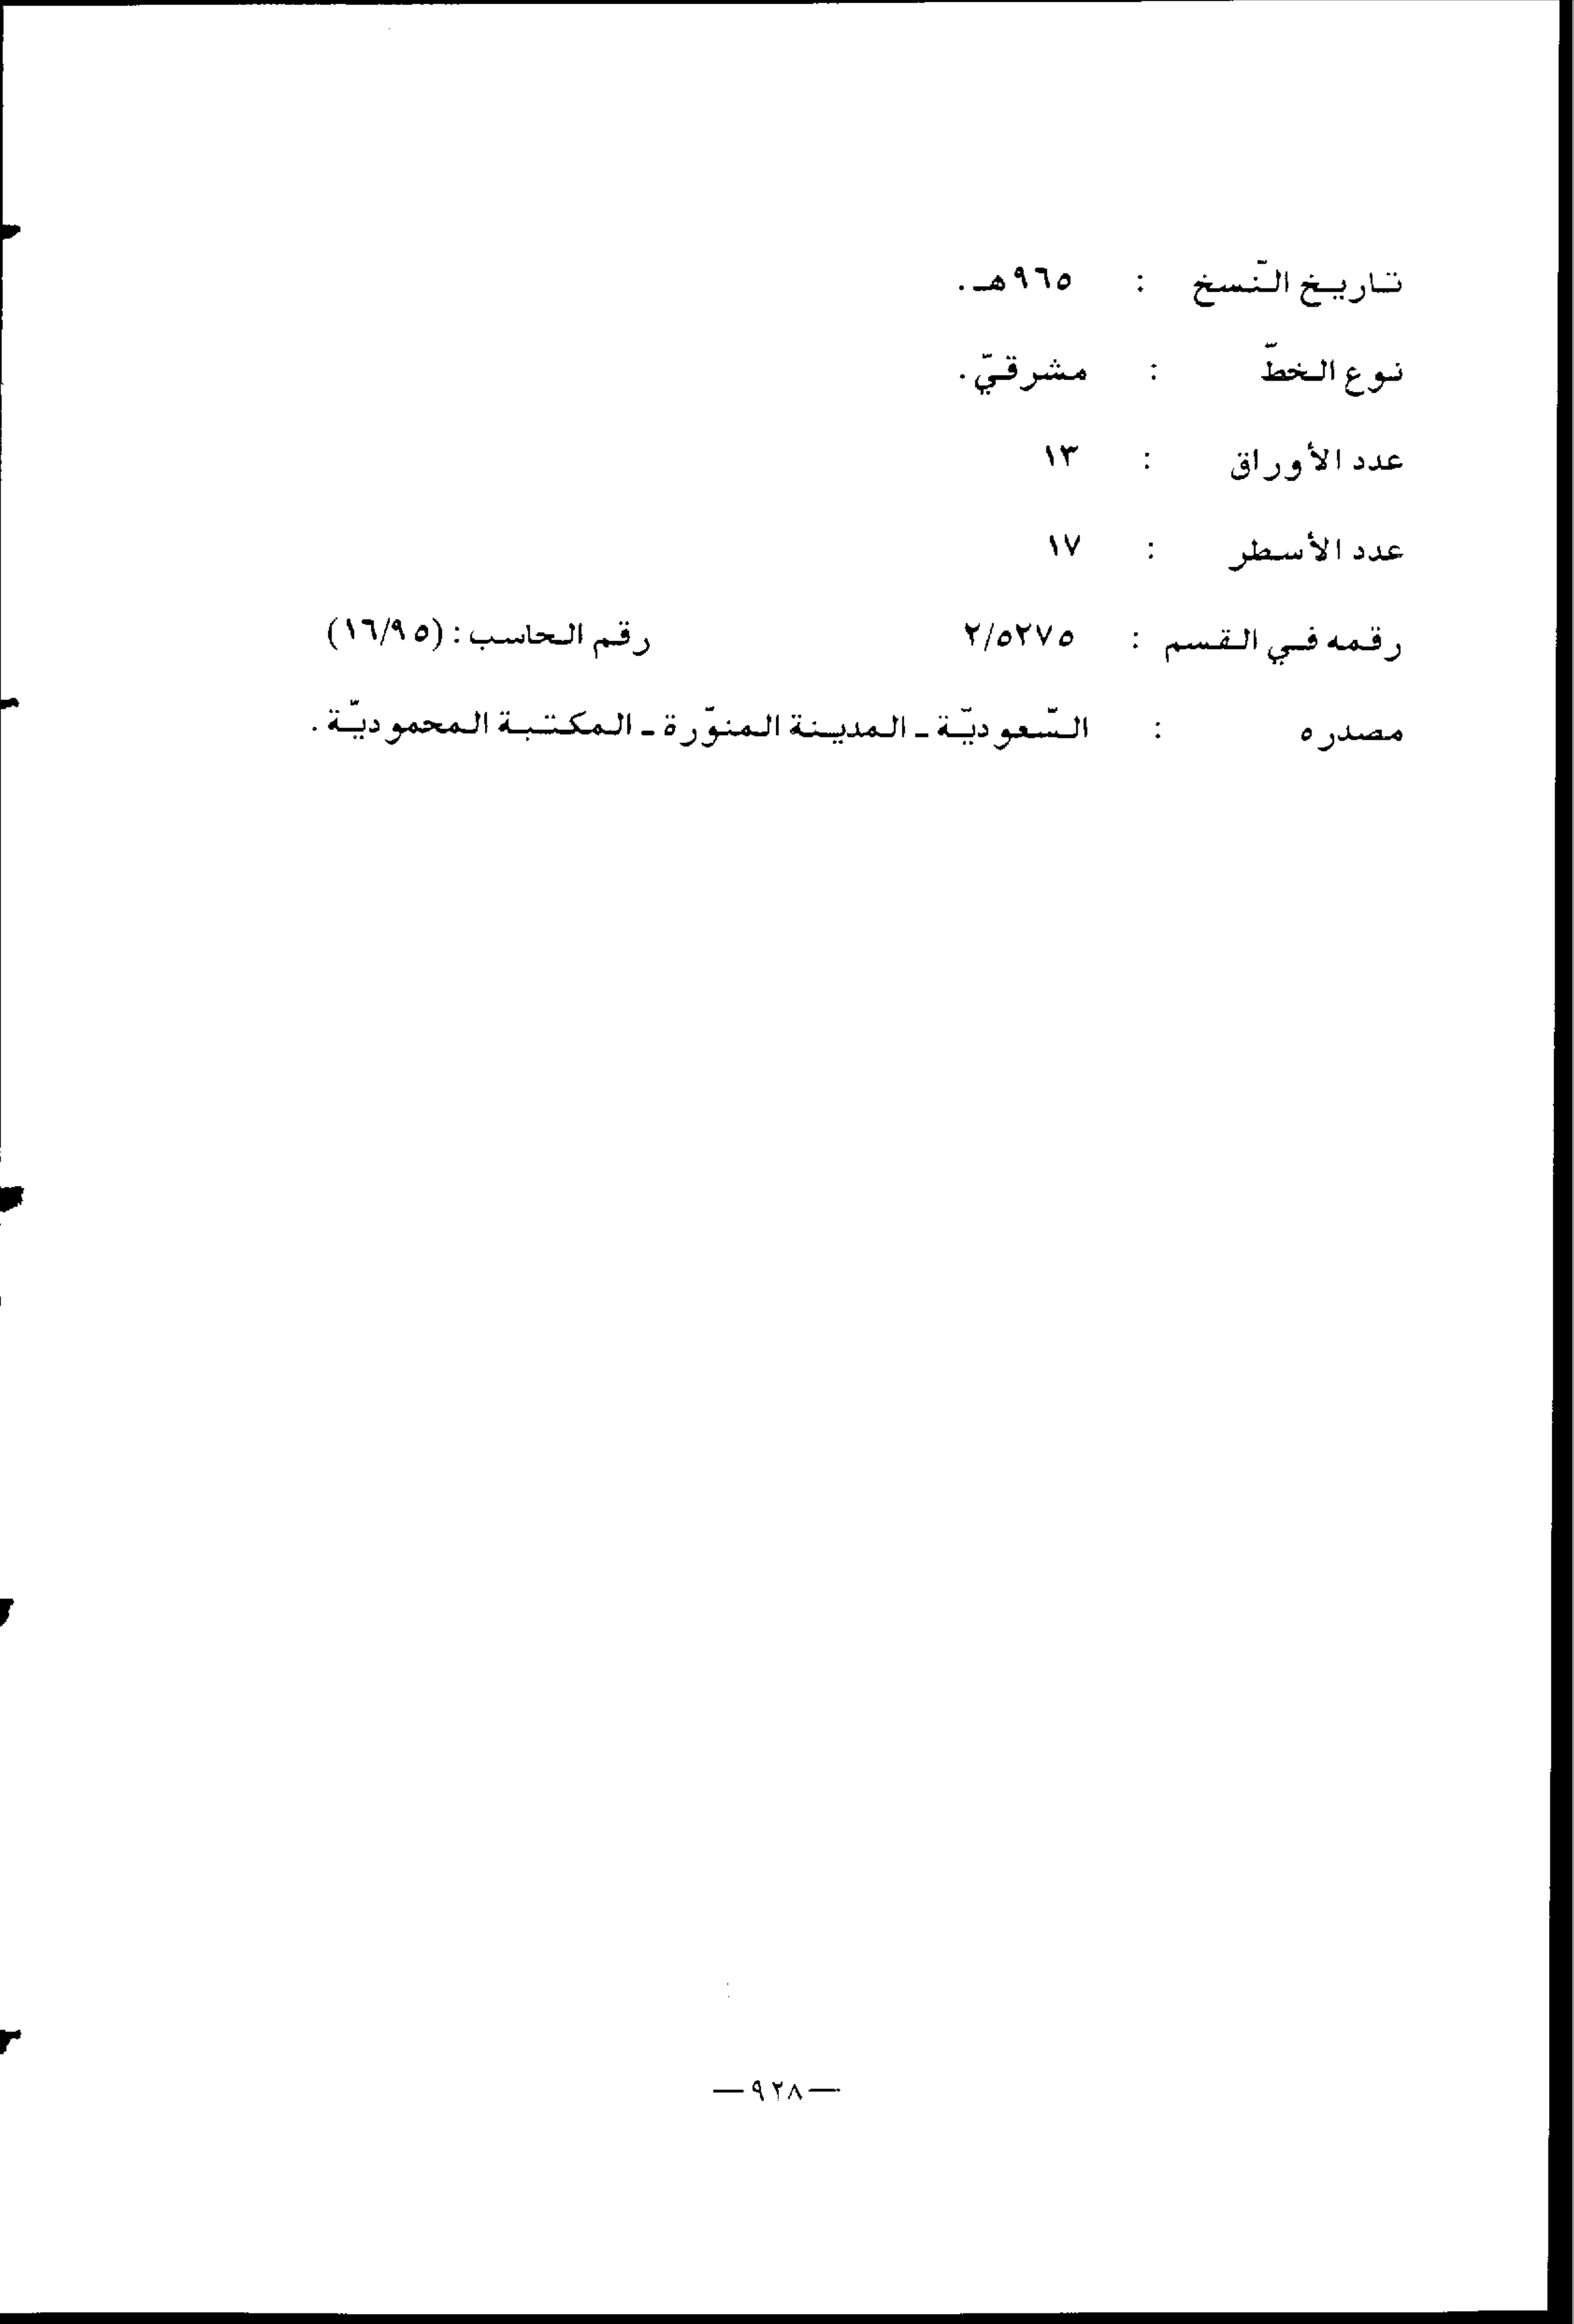 تاريخ النّسخ : ٩٦٥هـ.
نوع الخطّ : مشرقيّ.
عدد الأوراق : ١٣
عدد الأسطر : ١٧
رقمه في القسم : ٢/٥٢٧٥ رقم الحاسب: (١٦/٩٥)
مصدره : السّعوديّة ـ المدينة المنوّرة ـ المكتبة المحموديّة.
—٩٢٨—